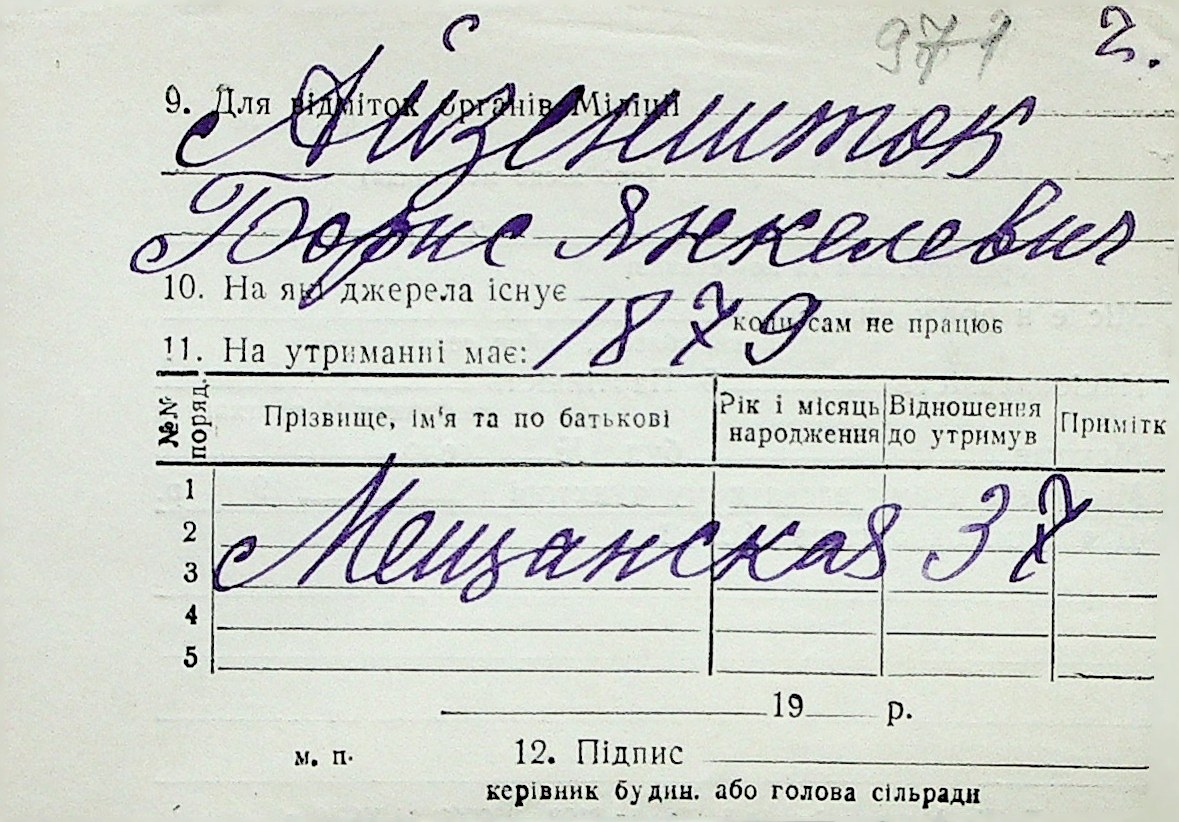 971 г.
9. Для відміток органів Міліції
Айзеншток
Борис Янкелевич
10. На які джерела існує
коли сам не працює
1879
11. На утриманні має:
№№ поряд.
Прізвище, ім'я та по батькові
Рік і місяць народження
Відношення до утримув
Примітк
1
2
Мещанская 37
3
4
5
19 р.
м. п.
12. Підпис
керівник будин. або голова сільради